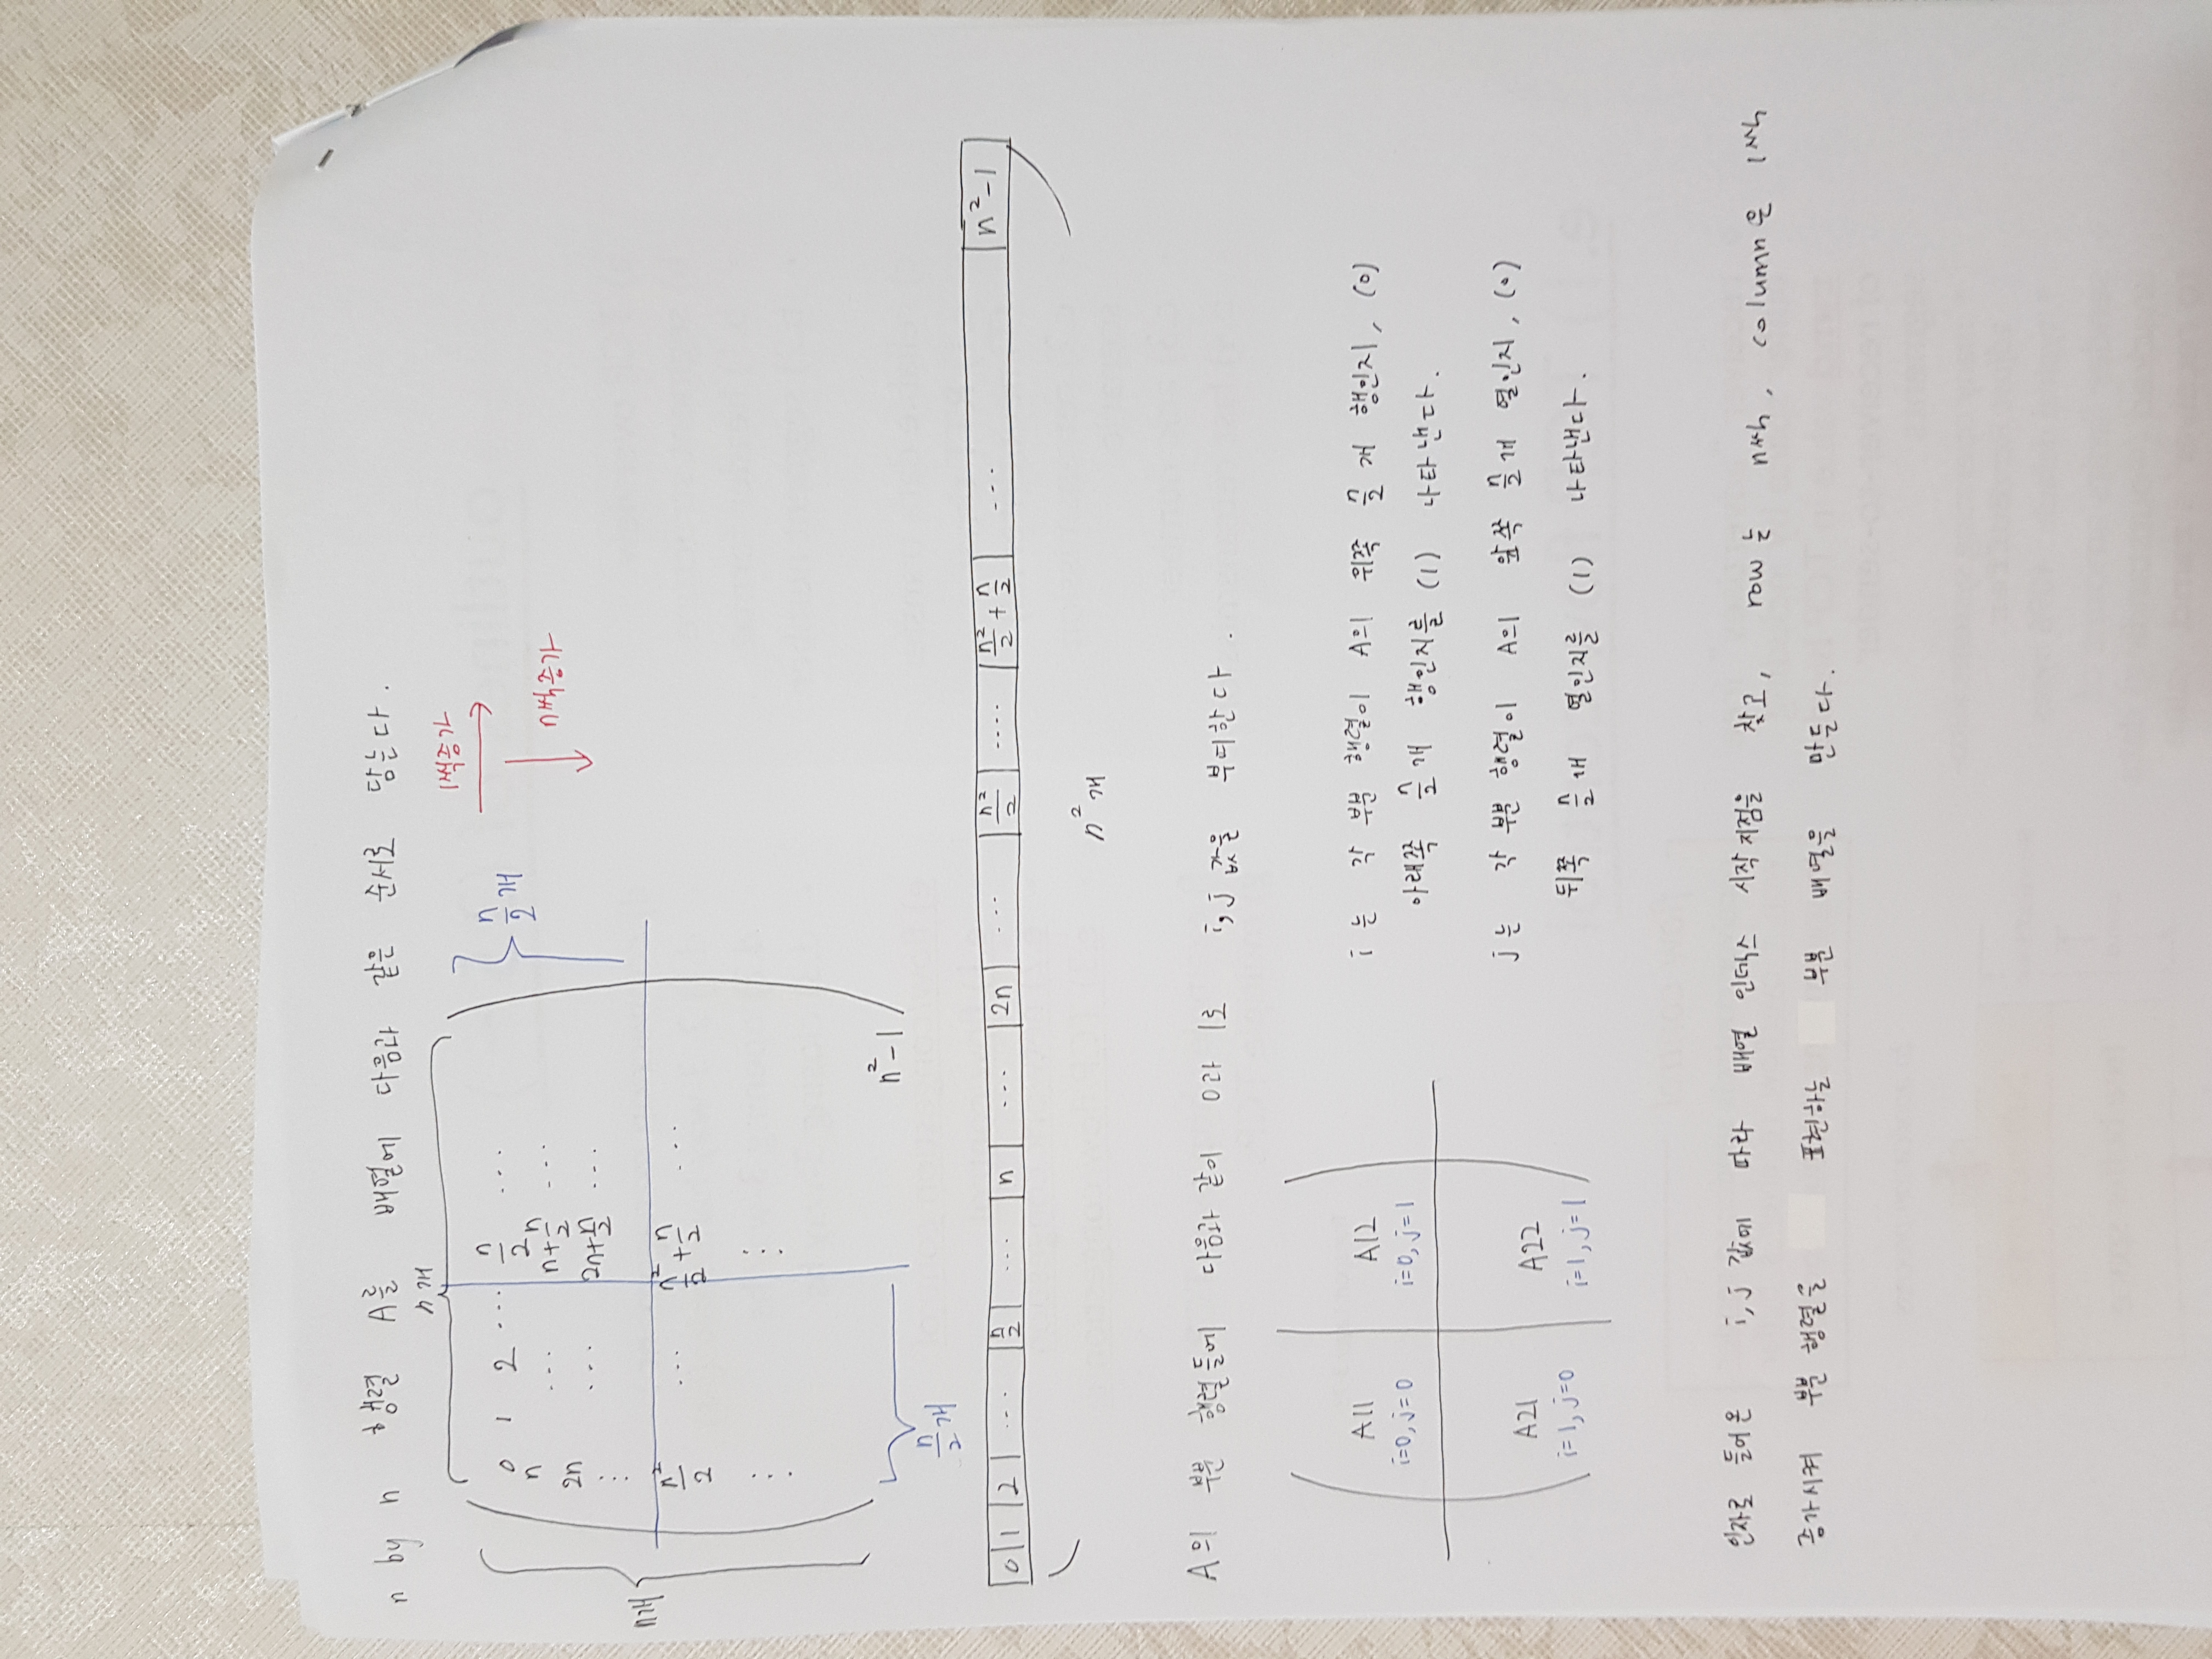 n by n 행렬 A를 배열에 다음과 같은 순서로 담는다.
n개
0 1 2 ... n/2 ...
n ... n+n/2 ...
2n ... 2n+n/2 ...
⋮
n²/2 ... n²/2+n/2 ...
⋮ ⋮
n²-1
n개
n/2개
n/2개
1씩증가
n씩증가
0 1 2 ... n/2 ... n ... 2n ... n²/2 .... n²/2+n/2 ... n²-1
n²개
A의 부분 행렬들에 다음과 같이 0과 1로 i,j 값을 부여한다.
A11 A12
i=0, j=0 i=0, j=1
A21 A22
i=1, j=0 i=1, j=1
i는 각 부분 행렬이 A의 위쪽 n/2개 행인지, (0)
아래쪽 n/2개 행인지를 (1) 나타낸다.
j는 각 부분 행렬이 A의 앞쪽 n/2개 열인지, (0)
뒤쪽 n/2개 열인지를 (1) 나타낸다.
인자로 들어온 i,j 값에 따라 배열 인덱스 시작지점을 찾고, row는 n씩, column은 1씩
증가시켜 부분 행렬을 표현하는 부분 배열을 만든다.